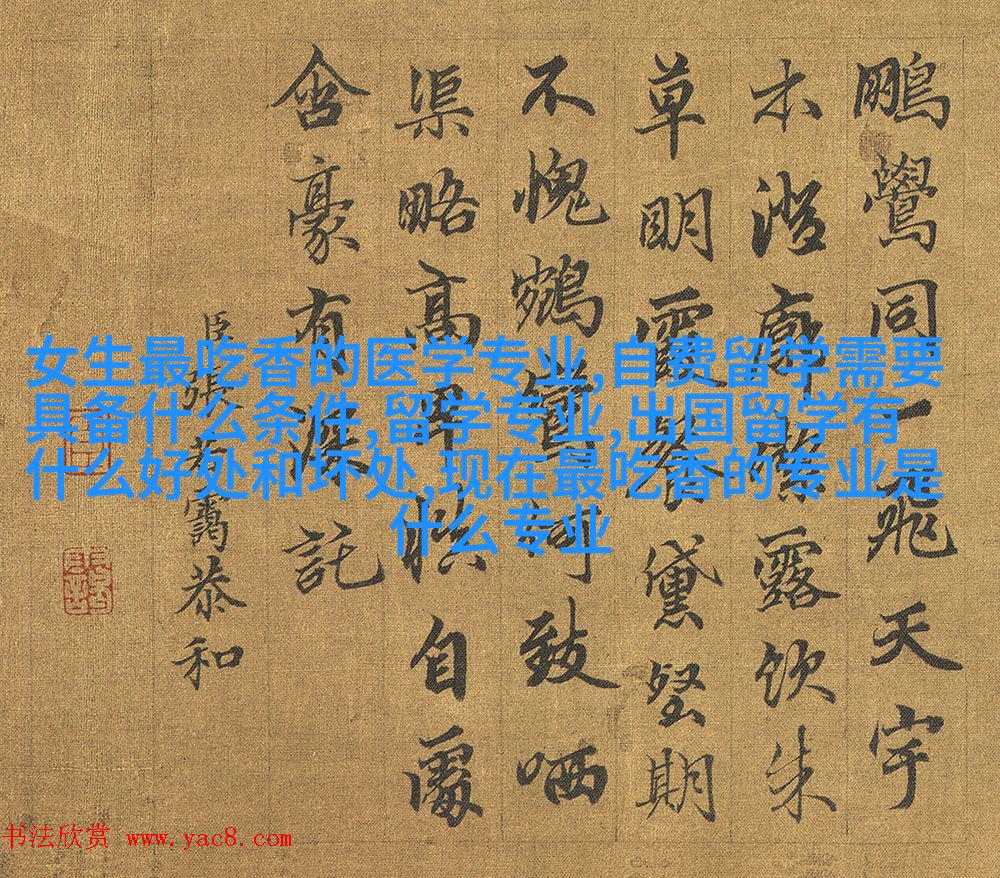 女生最吃香的医学专业,自费留学需要
具备什么条件,留学专业,出国留学有
什么好处和坏处,现在最吃香的专业是
什么专业
鵬鷽同一飛天宇
木澄廓㡧露飲朱
草明霞餐黛堅期
不愧鶴鶯何致哂
渠略高平慎自處
含豪有深託
臣張若靄恭和
书法欣赏 www.yac8.com